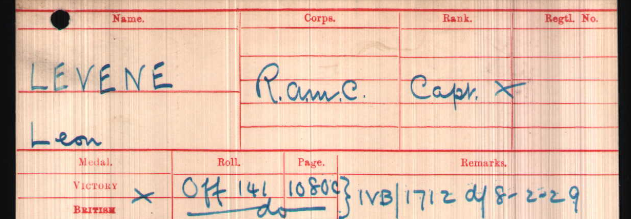 Name. Corps. Rank. Regtl. No.
LEVENE R.am.C. Capt. X
Leon
Medal. Roll. Page. Remarks.
VICTORY X Off 141 1080C } IVB/1712 d/ 8-2-29
BRITISH do